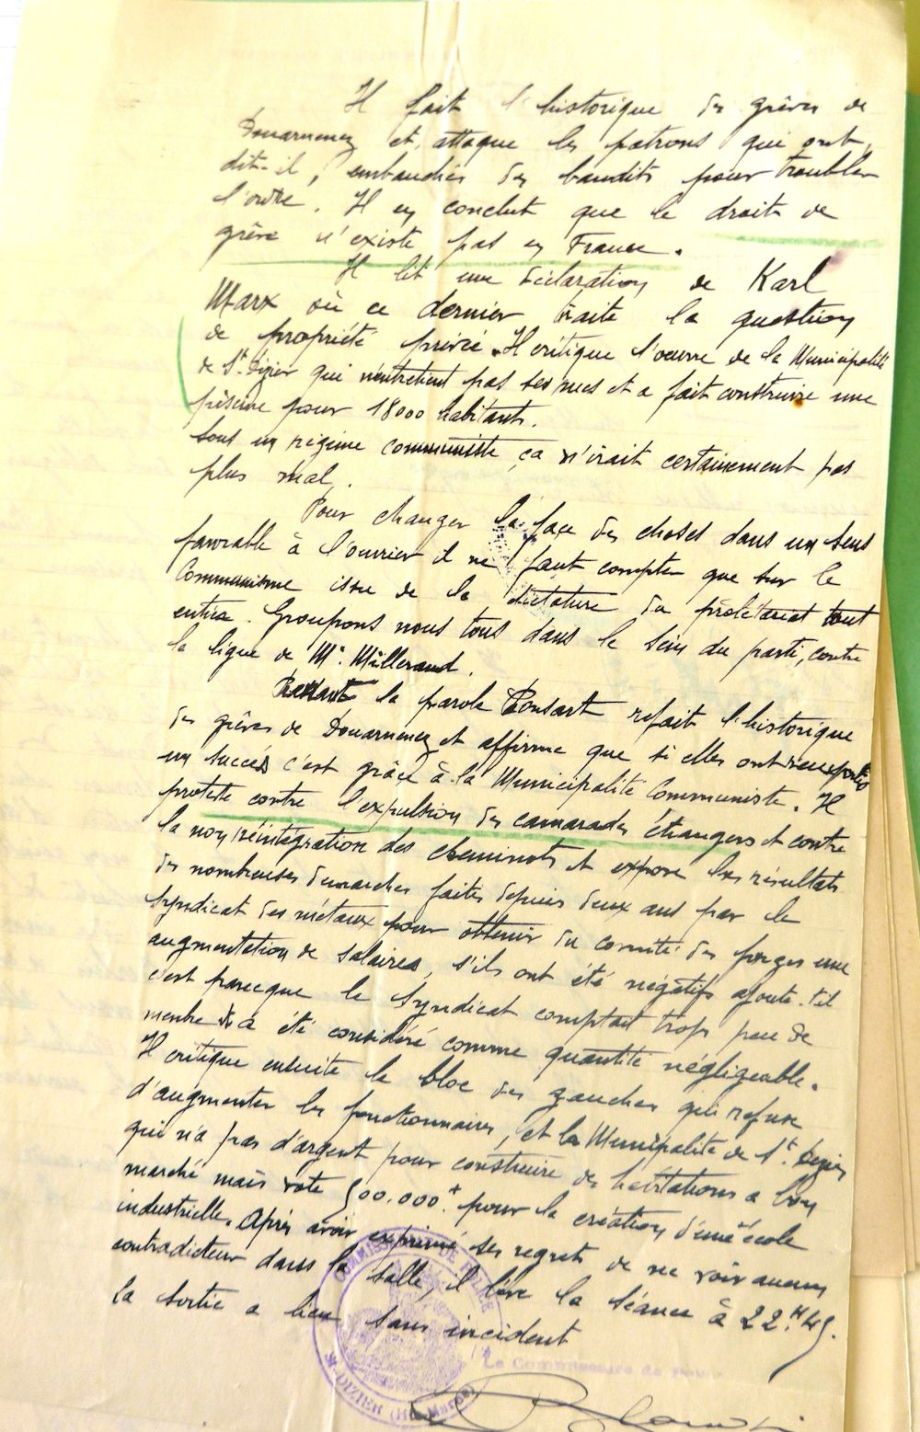 Il fait l'historique des grèves de
Douarnenez et attaque les patrons qui ont,
dit-il, embauchés des bandits pour troubler
l'ordre. Il en conclut que le droit de
grève n'existe pas en France.
Il lit une déclaration de Karl
Marx où ce dernier traite la question
de propriété privée. Il critique l'œuvre de la Municipalité
de St. Dizier qui n'entretient pas ses rues et a fait construire une
piscine pour 18000 habitants.
Sous un régime communiste ça n'irait certainement pas
plus mal.
Pour changer la face des choses dans un sens
favorable à l'ouvrier il ne faut compter que sur le
Communisme issu de la dictature du prolétariat tout
entier. Groupons nous tous dans le sein du parti, contre
la ligue de Mr. Millerand.
la parole Ronsart refait l'historique
des grèves de Douarnenez et affirme que si elles ont remporté
un succès c'est grâce à la Municipalité Communiste. Il
proteste contre l'expulsion des camarades étrangers et contre
la non réintégration des cheminots et expose les résultats
des nombreuses démarches faites depuis deux ans par le
Syndicat des métaux pour obtenir du comité des forges une
augmentation de salaires, s'ils ont été négatifs ajoute-t-il
c'est parceque le Syndicat comptait trop peu de
membre & a été considéré comme quantité négligeable.
Il critique ensuite le bloc des gauches qui refuse
d'augmenter les fonctionnaires, et la Municipalité de St. Dizier
qui n'a pas d'argent pour construire des habitations à bon
marché mais vote 500.000 f. pour la création d'une école
industrielle. Après avoir exprimé ses regrets de ne voir aucun
contradicteur dans la salle, il lève la séance à 22 H 45.
la sortie a lieu sans incident
COMMISSARIAT DE POLICE
St-DIZIER (Hte Marne)
Le Commissaire de Police